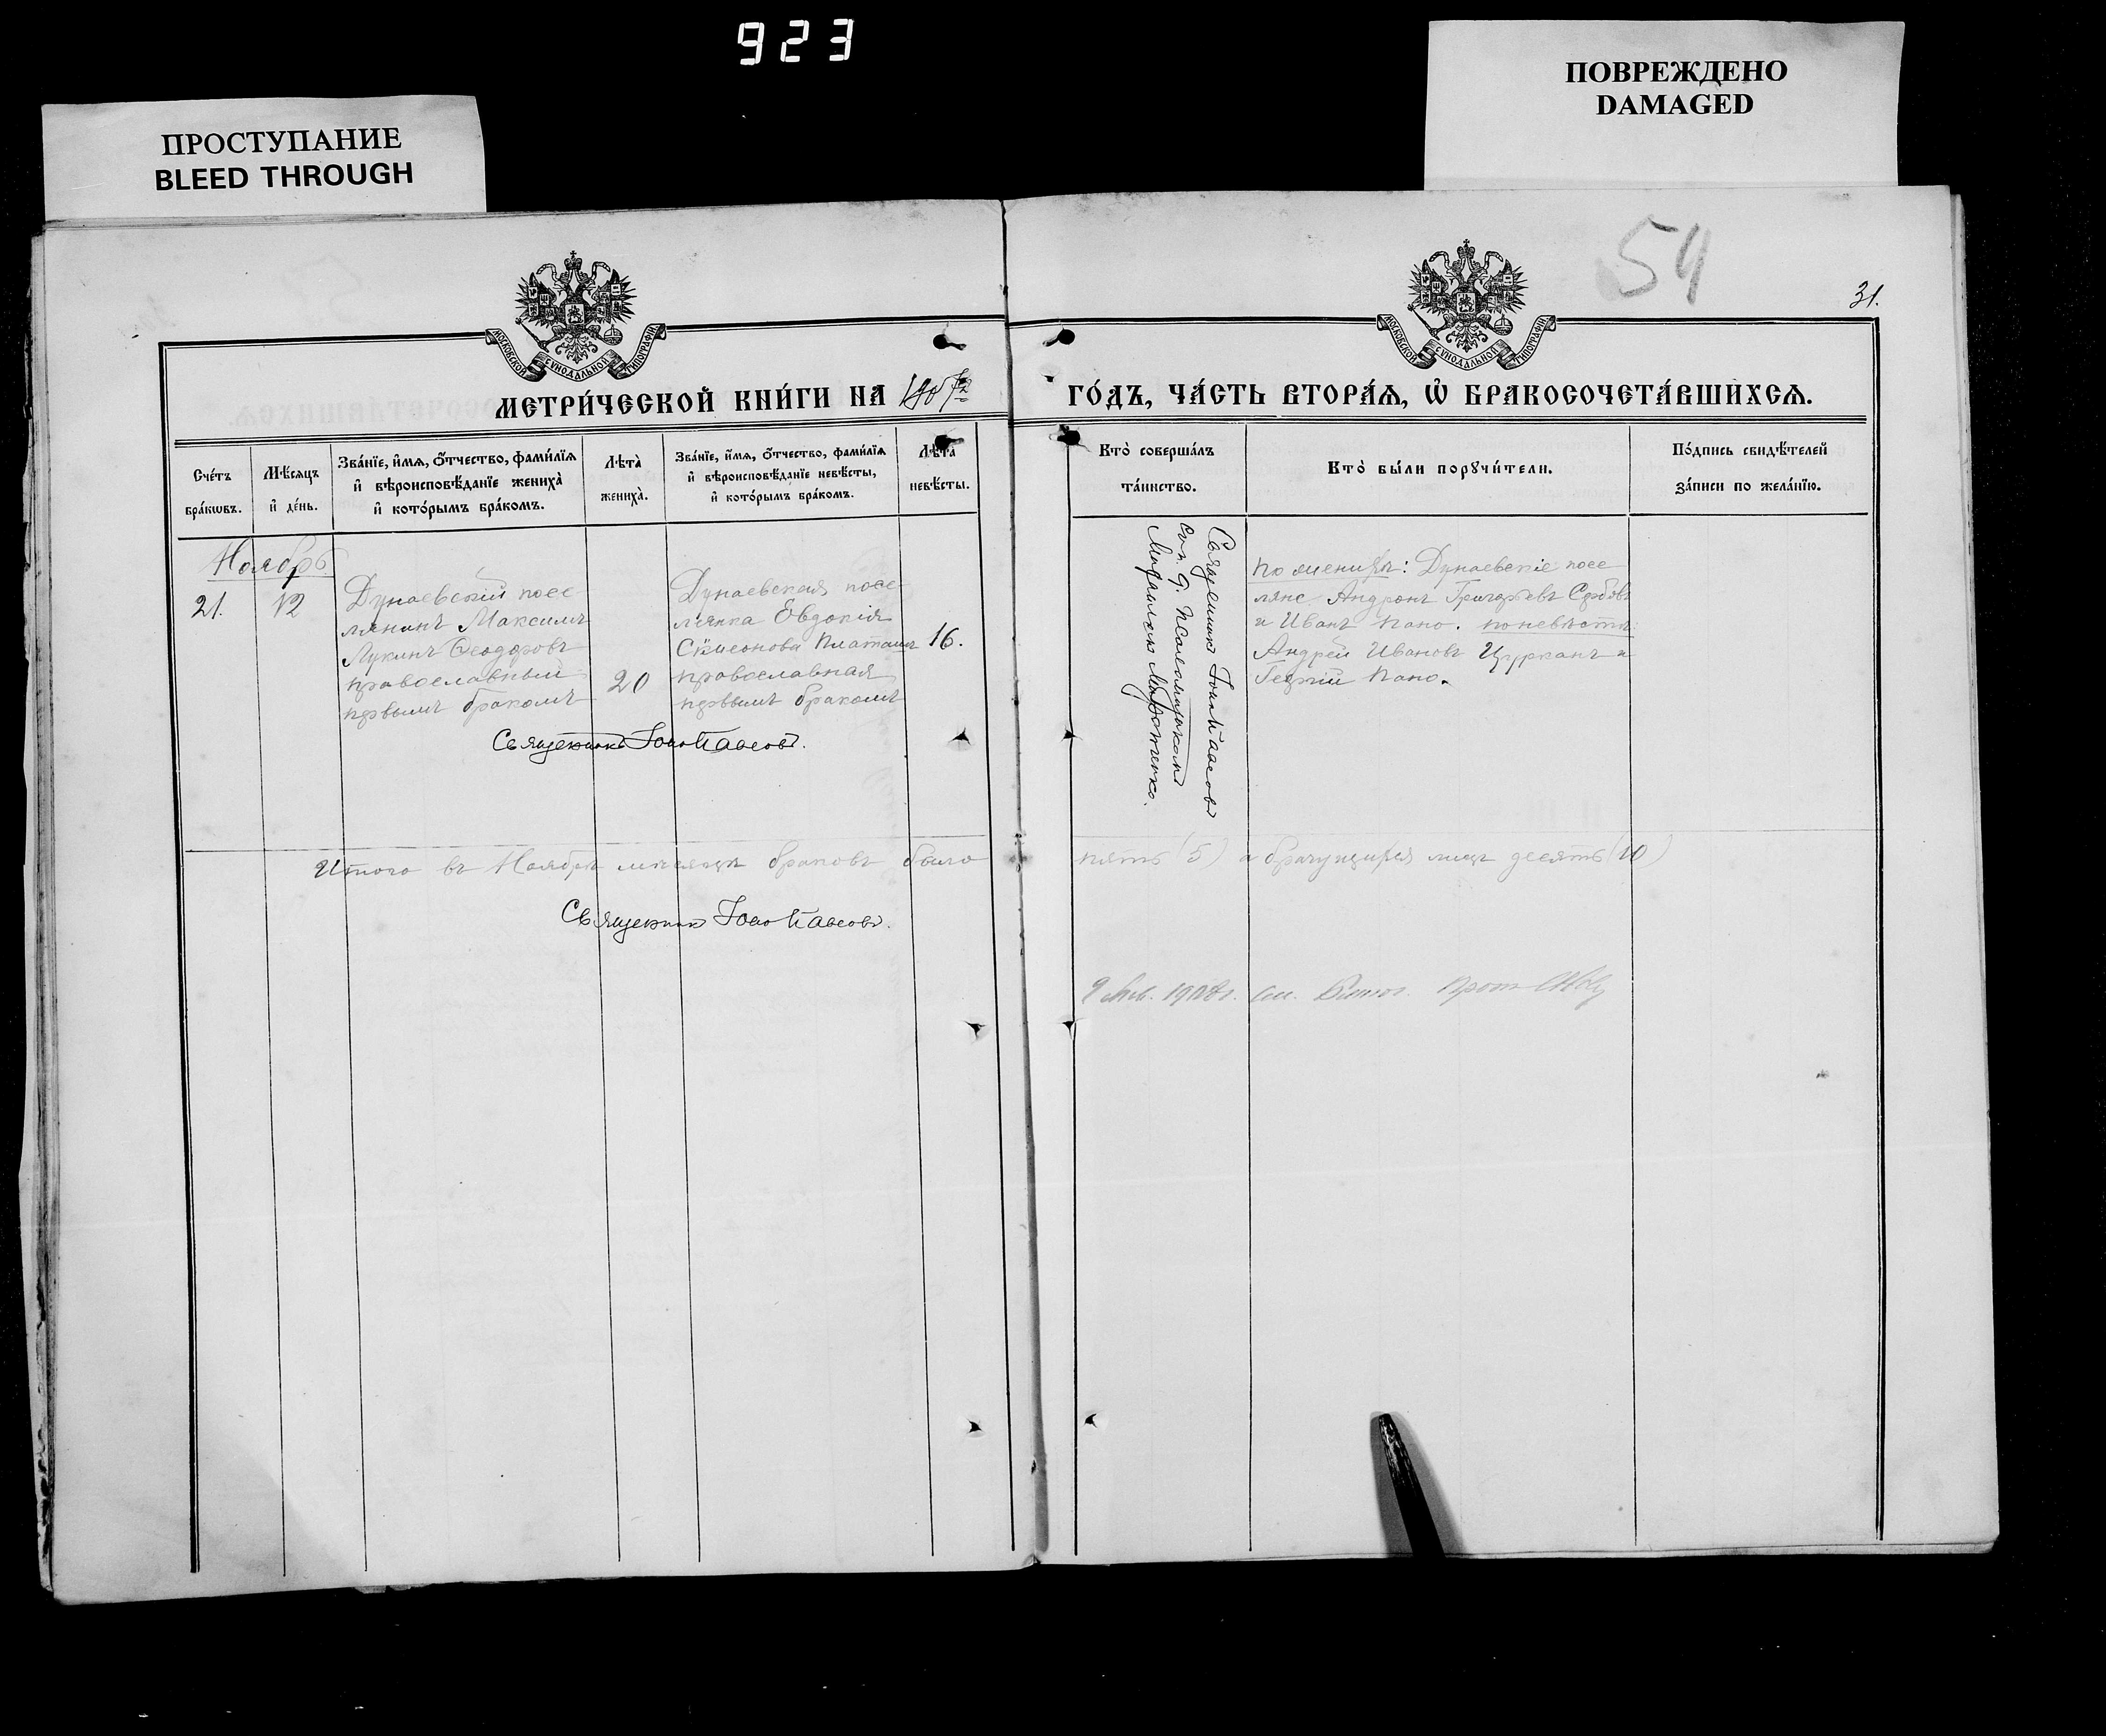 923
ПРОСТУПАНИЕ
BLEED THROUGH
ПОВРЕЖДЕНО
DAMAGED
54
31.
МОСКОВСКОЙ СѴНОДАЛЬНОЙ ТИПОГРАФІИ
МОСКОВСКОЙ СѴНОДАЛЬНОЙ ТИПОГРАФІИ
МЕТРИ́ЧЕСКОЙ КНИ́ГИ НА 1907
ГО́ДЪ, ЧА́СТЬ ВТОРА́Ѧ, Ѡ҆ БРАКОСОЧЕТА́ВШИХСѦ.
Сче́тъ бра́кѡвъ.
Мѣ́сѧцъ и҆ де́нь.
Зва́нїе, и҆́мѧ, ѻ҆́тчество, фами́лїѧ
и҆ вѣроисповѣ́данїе жениха̀
и҆ кото́рымъ бра́комъ.
Лѣта̀ жениха̀.
Зва́нїе, и҆́мѧ, ѻ҆́тчество, фами́лїѧ
и҆ вѣроисповѣ́данїе невѣ́сты,
и҆ кото́рымъ бра́комъ.
Лѣта̀ невѣ́сты.
Кто̀ соверша́лъ та́инство.
Кто̀ бы́ли порꙋчи́тели.
По́дпись свидѣ́телей за́писи по жела́нїю.
Ноябрь
21.
12
Дунаевскій посе
лянинъ Максимъ
Лукинъ Ѳеодоровъ
православный
первымъ бракомъ
20
Дунаевская посе
лянка Евдокія
Симеонова Платонъ
православная
первымъ бракомъ
16.
Священникъ Іоаннъ
Священникъ Іоаннъ
съ псаломщикомъ
Михаиломъ
По женихѣ: Дунаевскіе посе
ляне Андронъ Григорьевъ Сербовъ
и Иванъ Пано. по невѣстѣ:
Андрей Ивановъ Цурканъ и
Георгій Пано.
Итого въ Ноябрѣ мѣсяцѣ браковъ было
пять (5) а брачущихся лицъ десять (10)
Священникъ Іоаннъ